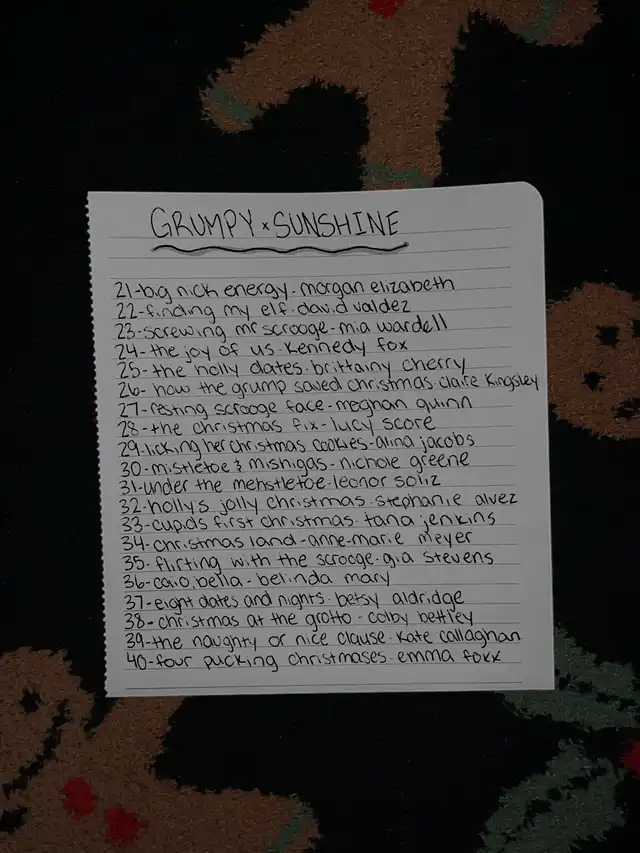 GRUMPY x SUNSHINE
21-big nick energy-morgan elizabeth
22-finding my elf-david valdez
23-screwing mr scrooge-mia wardell
24-the joy of us-kennedy fox
25-the holly dates-brittainy cherry
26-how the grump saved christmas-claire kingsley
27-resting scrooge face-meghan quinn
28-the christmas fix-lucy score
29-licking her christmas cookies-alina jacobs
30-mistletoe & mishigas-nichole greene
31-under the menstletoe-leonor soliz
32-holly's jolly christmas-stephanie alvez
33-cupids first christmas-tana jenkins
34-christmas land-anne-marie meyer
35-flirting with the scrooge-gia stevens
36-caio, bella-belinda mary
37-eight dates and nights-betsy aldridge
38-christmas at the grotto-colby bettley
39-the naughty or nice clause-kate callaghan
40-four pucking christmases-emma foxx